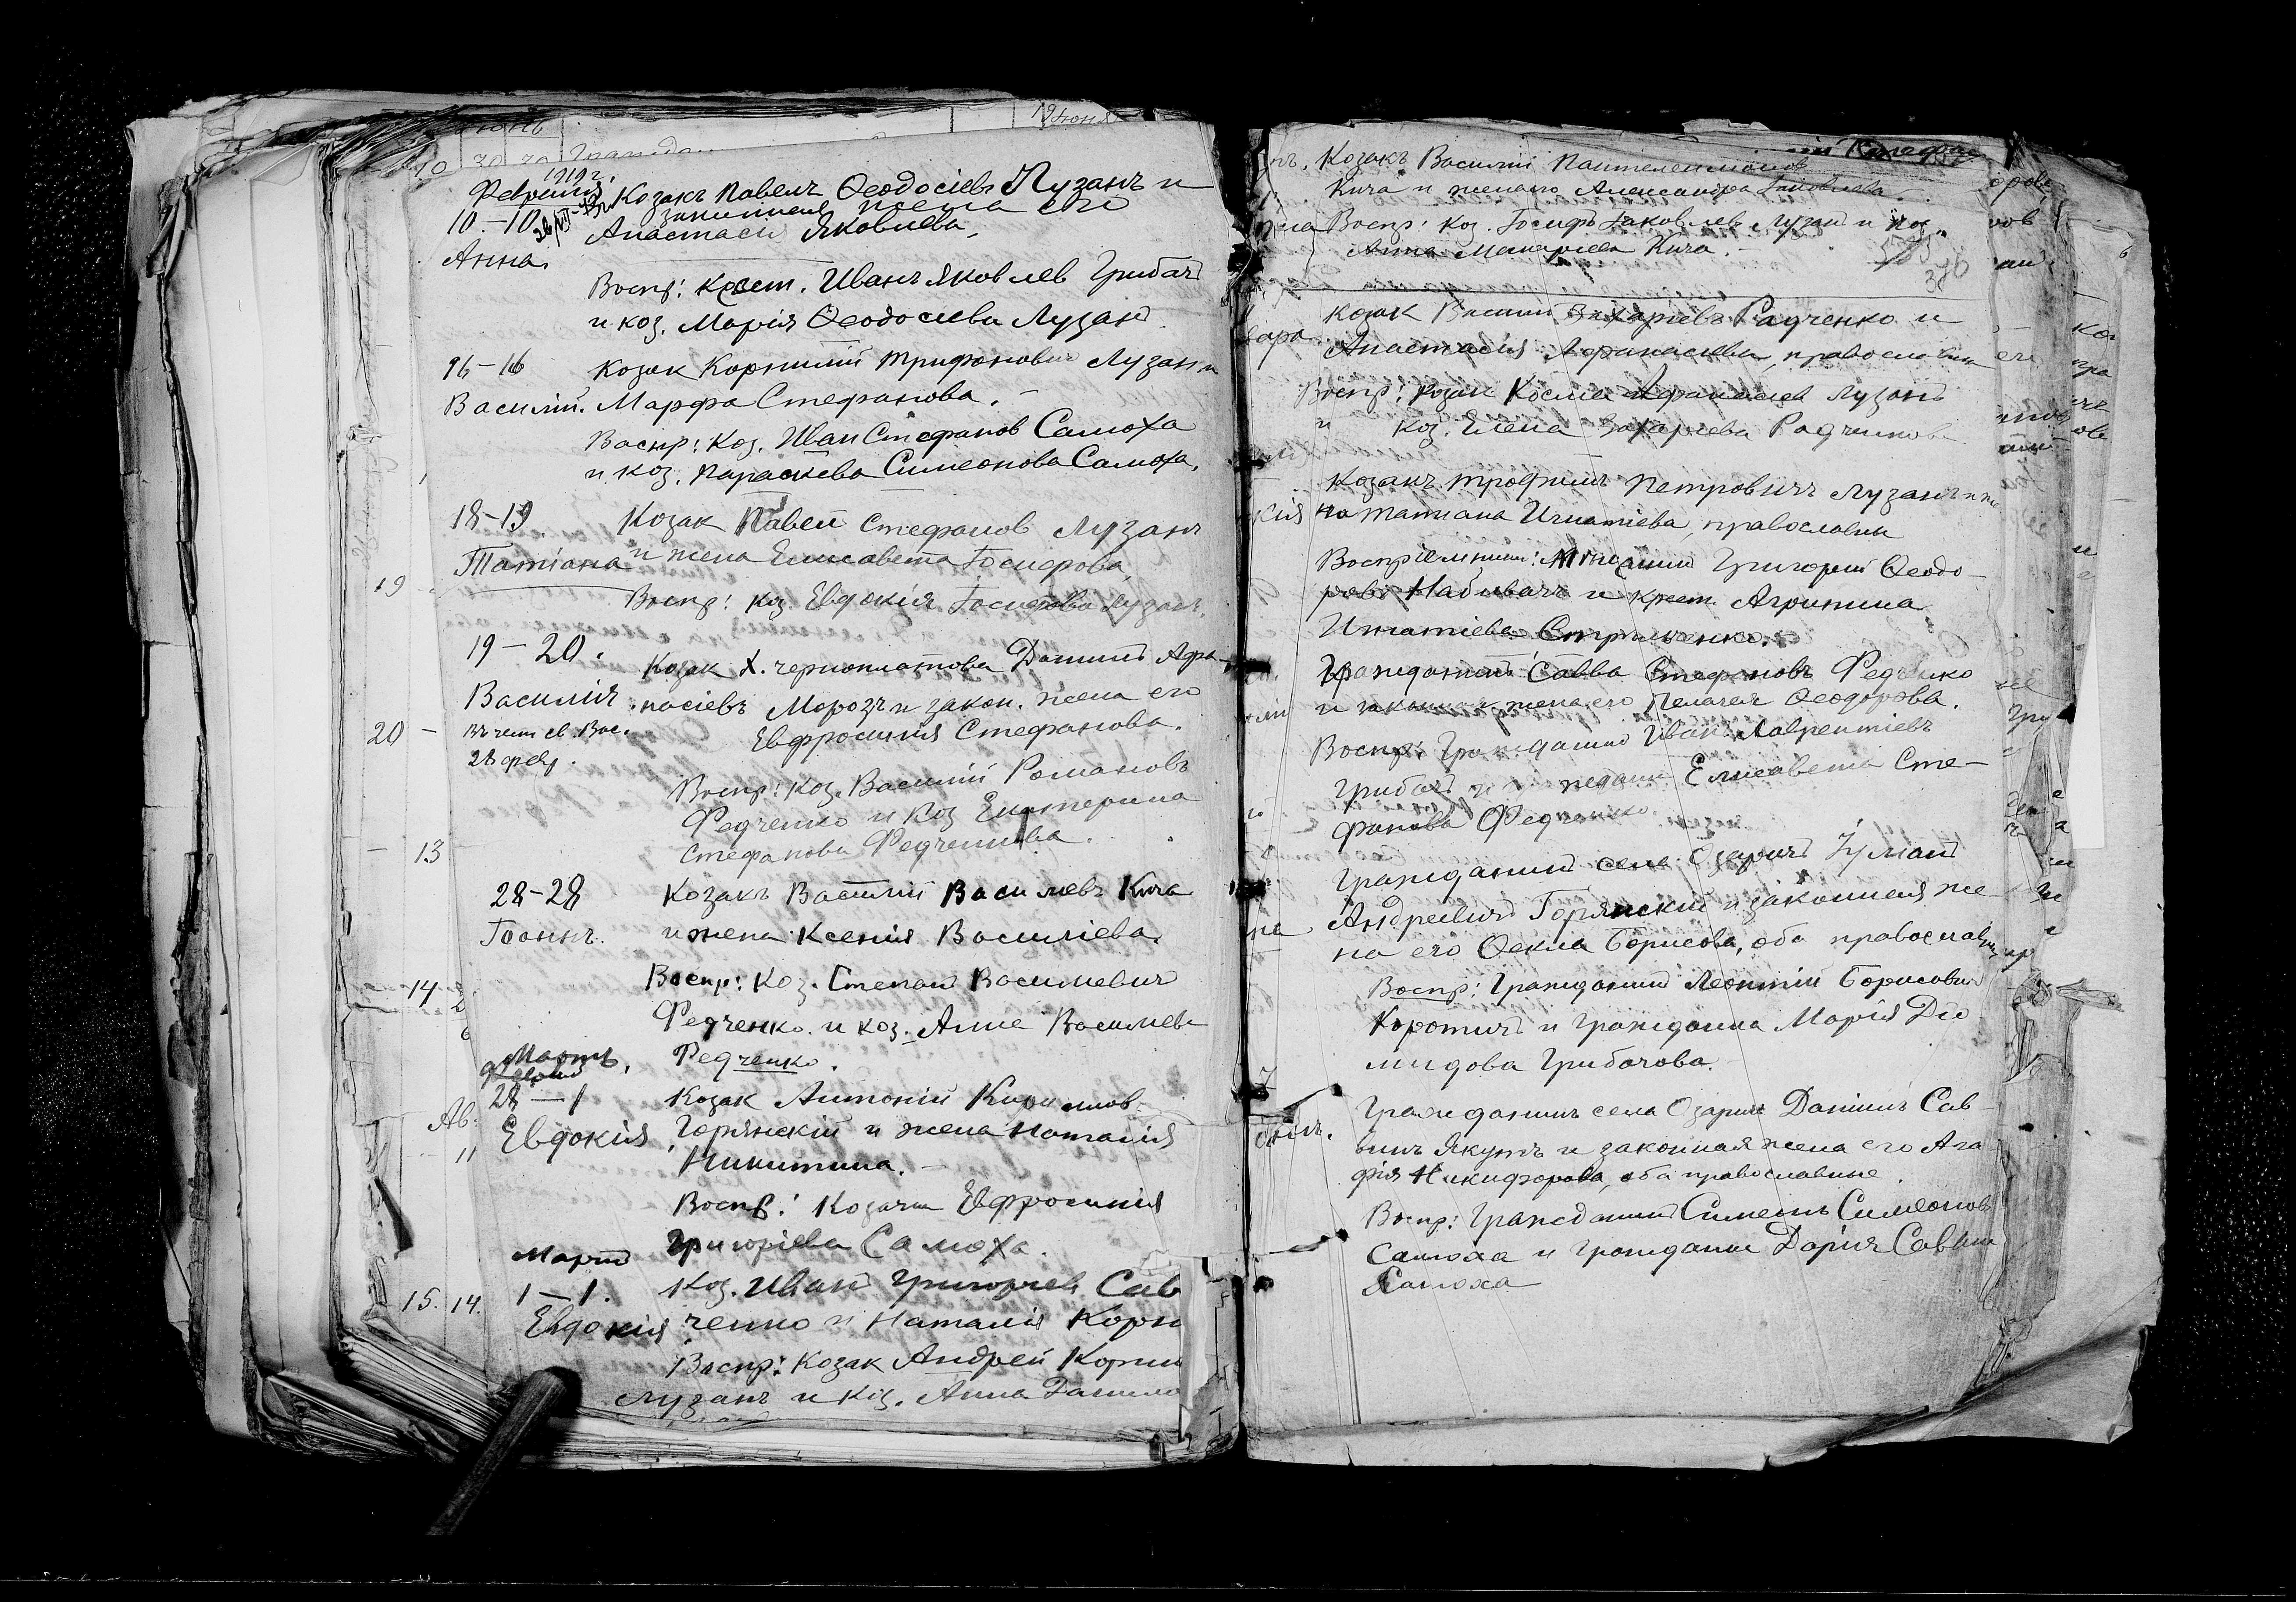 1919 г.
Февраля. Козакъ Павелъ Ѳеодосіевъ Лузанъ и
10.-10 законная жена его
Анастасія Яковлева.
Анна.
Воспр: Крест. Иванъ Яковлев Грибач
и коз. Марія Ѳеодосіева Лузан
16-16 Козак Корнилій Трифонович Лузан и
Василій. Марфа Стефанова.
Воспр: Коз. Иван Стефанов Самоха
и коз. Параскева Симеонова Самоха.
18-19 Козак Павел Стефанов Лузанъ
Татіана и жена Елисавета Іосифова.
19
Воспр: коз. Евдокия Іосифова Лузанъ
19-20. Козак х. Черноплатова Даниил Афа-
Василій. насіевъ Морозъ и закон. жена его
20 - въ чест св. Вас. Евфросинія Стефанова.
28 февр.
Воспр: Коз. Василій Романовъ
Федченко и Коз Екатерина
13 Стефанова Федченкова.
28-28 Козакъ Василій Василіевъ Кича
Іоаннъ. и жена Ксенія Василіева.
14 Воспр: Коз. Степан Василиевич
Федченко и коз. Анна Василиева
Мартъ. Федченко.
28-1 Козак Антоній Кирилов
Ав. Евдокія Горянскій и жена Наталія
11 Никитина.
Воспр: Козачка Евфросинія
Григоріева Самоха.
Март
15. 14. 1-1. Коз. Иван Григориев Сав
Евдокія ченко и Наталія Корн
Воспр: Козак Андрей Корни
Лузанъ и коз. Анна Данило
Козакъ Василій Пантелеимонов
Кича и жена его Александра Іаковлева.
Воспр: Коз. Іосифъ Іаковлев Лузан и коз.
Анна Макаріева Кича.
376
Козак Василий Захаріевъ Радченко и
Анастасія Афанасіева, православны
Воспр: Козак Косма Афанасиев Лузанъ
и Коз. Елена Захаріева Радченкова
Козакъ Трофимъ Петровичъ Лузанъ и же
на Татиана Игнатіева, православны
Воспріемники: Григорий Ѳеодо-
ровъ Набивачъ и крест. Агрипина
Игнатіева Стрильченко.
Гражданин Савва Стефановъ Федченко
и законная жена его Пелагея Ѳеодорова.
Воспр: Гражданин Иван Лаврентіевъ
Грибач и Елисавета Сте-
фанова Федченко
Гражданин села Озарич Іуліан
Андреевич Горянскій и законная же-
на его Ѳекла Борисова, оба православн
Воспр: Гражданин Леонтій Борисович
Коротич и гражданка Марія Діо
мидова Грибачова.
Гражданинъ села Озарич Даниилъ Сав-
вичъ Якутъ и законная жена его Ага
фія Никифорова, оба православные.
Воспр: Гражданин Симеонъ Симеонов
Самоха и гражданка Дарія Саввина
Самоха